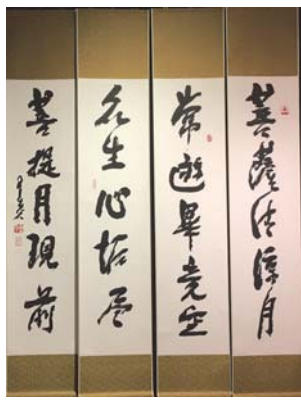 菩薩清涼月
常遊畢竟空
众生心垢尽
菩提月現前